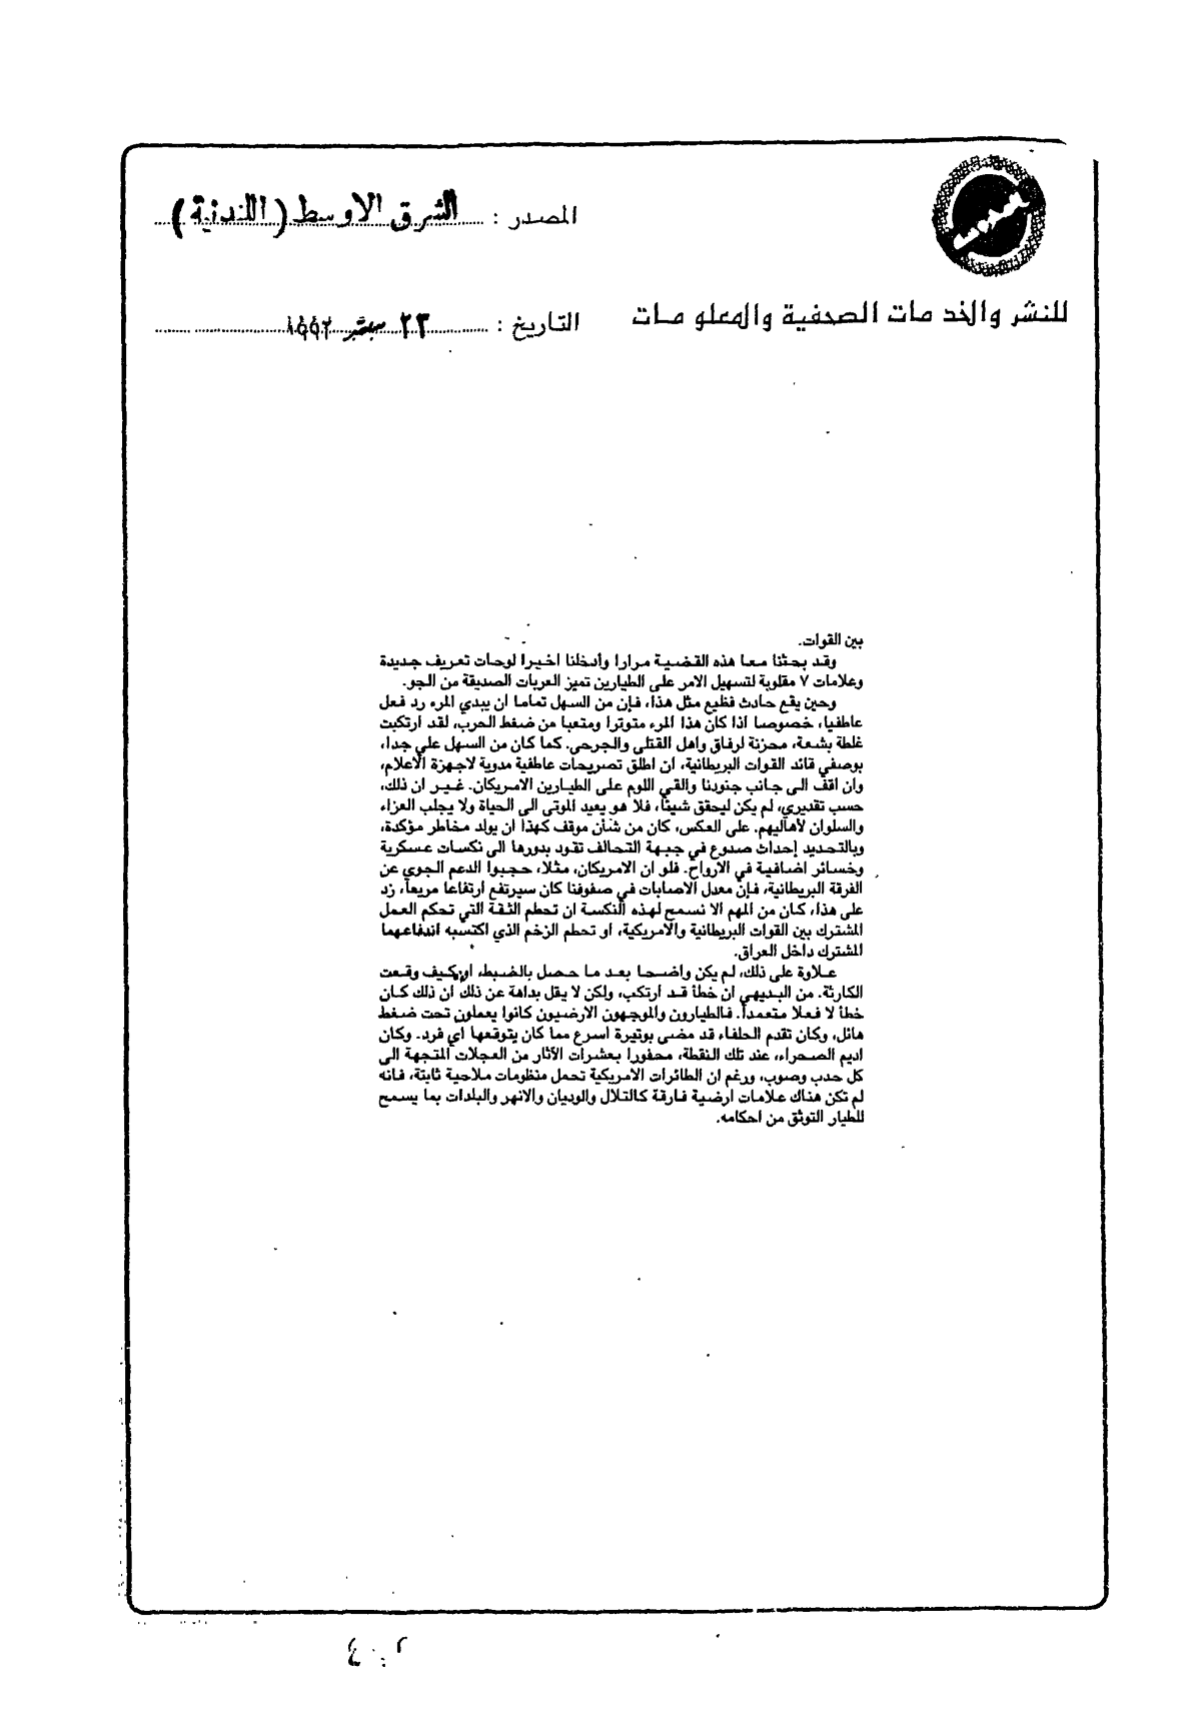 المصدر : الشرق الاوسط (اللندنية)
للنشر والخدمات الصحفية والمعلومات
التاريخ : ٢٣ سبتمبر ١٩٩٢
بين القوات.
وقد بحثنا معا هذه القضية مرارا وأدخلنا اخيرا لوحات تعريف جديدة
وعلامات ٧ مقلوبة لتسهيل الامر على الطيارين تميز العربات الصديقة من الجو.
وحين يقع حادث فظيع مثل هذا، فإن من السهل تماما ان يبدي المرء رد فعل
عاطفيا، خصوصا اذا كان هذا المرء متوترا ومتعبا من ضغط الحرب، لقد ارتكبت
غلطة بشعة، محزنة لرفاق واهل القتلى والجرحى. كما كان من السهل علي جدا،
بوصفي قائد القوات البريطانية، ان اطلق تصريحات عاطفية مدوية لاجهزة الاعلام،
وان اقف الى جانب جنودنا والقي اللوم على الطيارين الامريكان. غير ان ذلك،
حسب تقديري، لم يكن ليحقق شيئا، فلا هو يعيد الموتى الى الحياة ولا يجلب العزاء
والسلوان لأهاليهم. على العكس، كان من شأن موقف كهذا ان يولد مخاطر مؤكدة،
وبالتحديد إحداث صدوع في جبهة التحالف تقود بدورها الى نكسات عسكرية
وخسائر اضافية في الارواح. فلو ان الامريكان، مثلا، حجبوا الدعم الجوي عن
الفرقة البريطانية، فإن معدل الاصابات في صفوفنا كان سيرتفع ارتفاعا مريعا، زد
على هذا، كان من المهم الا نسمح لهذه النكسة ان تحطم الثقة التي تحكم العمل
المشترك بين القوات البريطانية والامريكية، او تحطم الزخم الذي اكتسبه اندفاعهما
المشترك داخل العراق.
علاوة على ذلك، لم يكن واضحا بعد ما حصل بالضبط، او كيف وقعت
الكارثة. من البديهي ان خطأ قد ارتكب، ولكن لا يقل بداهة عن ذلك ان ذلك كان
خطأ لا فعلا متعمداً. فالطيارون والموجهون الارضيون كانوا يعملون تحت ضغط
هائل، وكان تقدم الحلفاء قد مضى بوتيرة اسرع مما كان يتوقعها اي فرد. وكان
اديم الصحراء، عند تلك النقطة، محفورا بعشرات الآثار من العجلات المتجهة الى
كل حدب وصوب، ورغم ان الطائرات الامريكية تحمل منظومات ملاحية ثابتة، فانه
لم تكن هناك علامات ارضية فارقة كالتلال والوديان والانهر والبلدات بما يسمح
للطيار التوثق من احكامه.